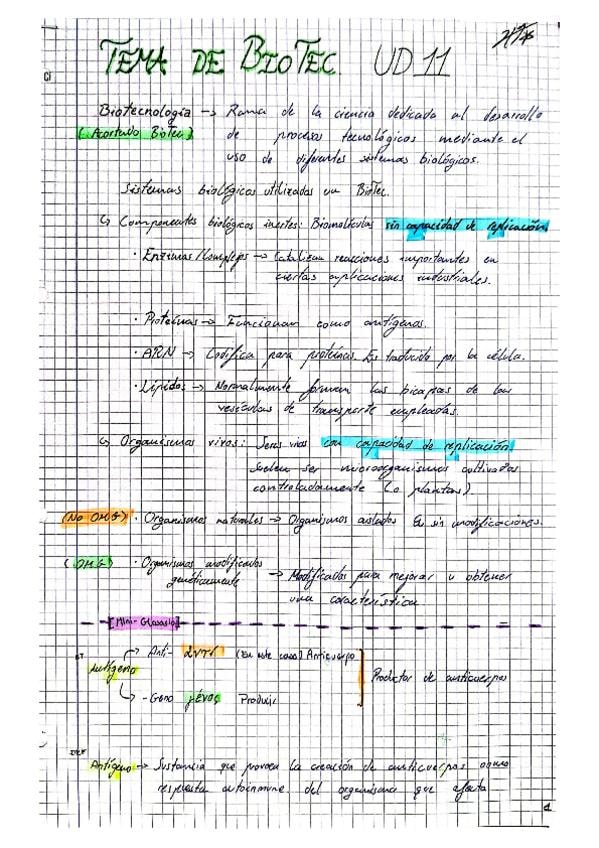 TEMA DE BIOTEC. UD 11
Biotecnología → Rama de la ciencia dedicada al desarrollo
(Acortado BioTec) de procesos tecnológicos mediante el
uso de diferentes sistemas biológicos.
Sistemas biológicos utilizados en BioTec.
↳ Componentes biológicos inertes: Biomoléculas sin capacidad de replicación.
· Enzimas/Complejos → Catalizan reacciones importantes en
ciertas aplicaciones industriales.
· Proteínas → Funcionan como antígenos.
· ARN → Codifica para proteínas. Es traducido por la célula.
· Lípidos → Normalmente forman las bicapas de las
vesículas de transporte empleadas.
↳ Organismos vivos: Seres vivos con capacidad de replicación.
Suelen ser microorganismos cultivados
controladamente (o plantas)
(No OMG) · Organismos naturales → Organismos aislados sin modificaciones.
(OMG) · Organismos modificados
genéticamente → Modificados para mejorar u obtener
una característica
[Mini-Glosario]
Antígeno
Anti- (En este caso) Anticuerpo
-Geno γένος Producir
Productor de anticuerpos
DEF
Antígeno → Sustancia que provoca la creación de anticuerpos como
respuesta autoinmune del organismo que afecta
1